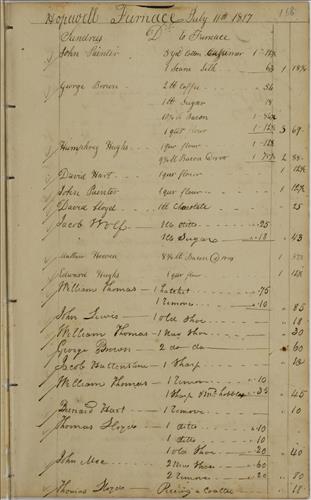 Hopewell Furnace July 11th 1817
Sundries Drs to Furnace
John Painter 3 yd Cotton 1-12½
1 Seane Silk 6¼ 1 18¾
George Brown 2 lb Coffee 56
1 lb Sugar 18
lb Bacon
1 qur flour 1-12½ 3 69
Humphrey Hughs 1 qur flour 1-12½
9½ lb Bacon 2 88
David Hart 1 qur flour 1 12½
John Painter 1 qur flour 1 12½
David Lloyd 1 lb Chocolate 25
Jacob Wolf 1 lb ditto .25
1 lb Sugar .18 43
Mathew Heewen 8¾ lb Bacon 1
Edward Hughs 1 qur flour 1 12½
William Thomas 1 hatchet .75
1 Remove .10 85
John Lewis 1 old Shoe 18
William Thomas 1 New Shoe 30
George Brown 2 do do 60
Jacob Hattenstine 1 Sharp 18
William Thomas 1 Remov .10
1 Sharp .35 45
Barnard Hart 1 Remove 10
Thomas Lloyd 1 ditto .10
1 ditto .10
1 old Shoe .20 40
John Moe 2 New Shoes .60
2 Remove .20 80
Thomas Lloyd Piecing a Coulter 18